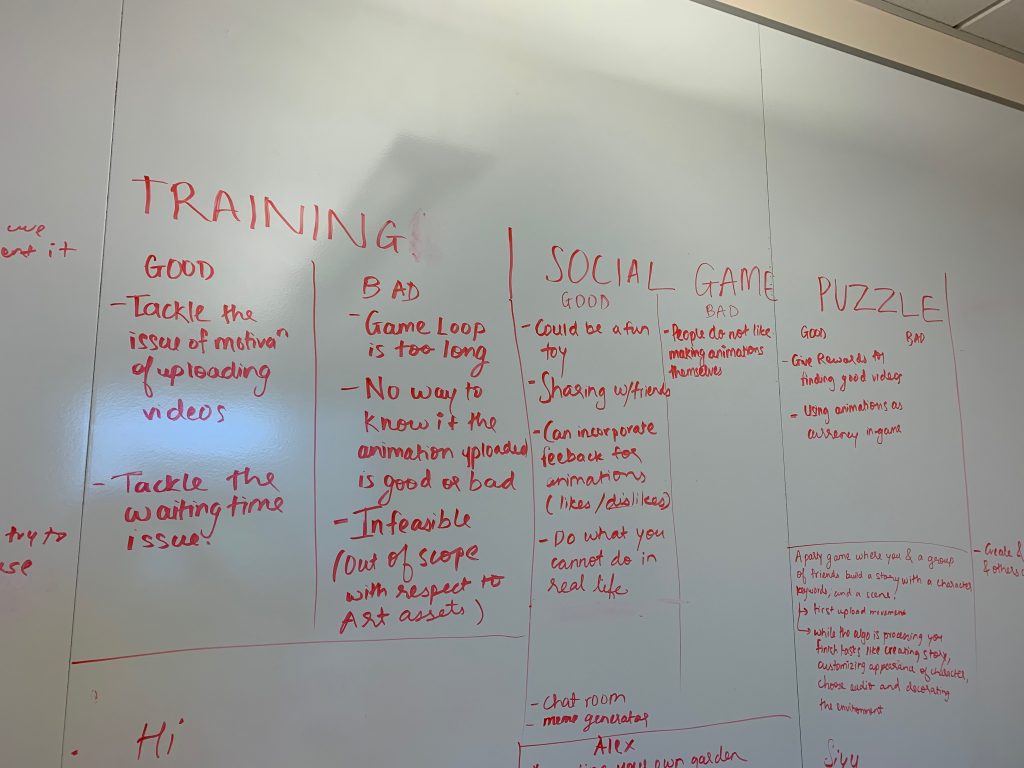 we
it
try to
TRAINING
GOOD
- Tackle the
issue of motivaⁿ
of uploading
videos
- Tackle the
waiting time
issue.
BAD
- Game Loop
is too long
- No way to
know if the
animation uploaded
is good or bad
- Infeasible
(Out of scope
with respect to
Art assets)
Hi
SOCIAL GAME
GOOD
- Could be a fun
toy
- Sharing w/friends
- Can incorporate
feeback for
animations
(likes/dislikes)
- Do what you
cannot do in
real life
- chat room
- meme generator
BAD
- People do not like
making animations
themselves
Alex
your own garden
PUZZLE
GOOD
- Give Rewards for
finding good videos
- Using animations as
currency in-game
BAD
A party game where you & a group
of friends build a story with a character,
keywords, and a scene.
↳ First upload movement
↳ while the algo is processing you
finish tasks like creating story,
customizing appearance of character,
choose audio and decorating
the environment
Siyu
- Create &
& others